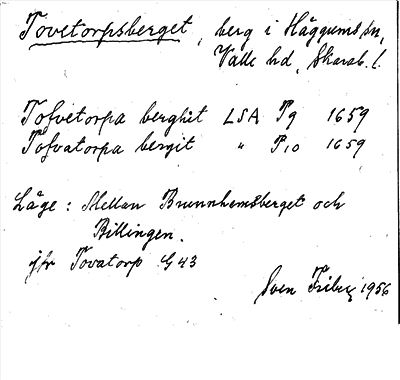 Tovetorpsberget, berg i Häggums sn,
Valle hd, Skarab. l.
Tofvetorpa berghit LSA P9 1659
Tofvatorpa bergit " P10 1659
Läge: Mellan Brunnhemsberget och
Billingen.
jfr Tovatorp G 43
Sven Friberg 1956